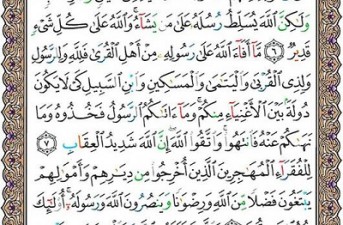 وَلَٰكِنَّ ٱللَّهَ يُسَلِّطُ رُسُلَهُۥ عَلَىٰ مَن يَشَآءُ وَٱللَّهُ عَلَىٰ كُلِّ شَىْءٍ
قَدِيرٌ ٦ مَّآ أَفَآءَ ٱللَّهُ عَلَىٰ رَسُولِهِۦ مِنْ أَهْلِ ٱلْقُرَىٰ فَلِلَّهِ وَلِلرَّسُولِ
وَلِذِى ٱلْقُرْبَىٰ وَٱلْيَتَٰمَىٰ وَٱلْمَسَٰكِينِ وَٱبْنِ ٱلسَّبِيلِ كَىْ لَا يَكُونَ
دُولَةًۢ بَيْنَ ٱلْأَغْنِيَآءِ مِنكُمْ وَمَآ ءَاتَىٰكُمُ ٱلرَّسُولُ فَخُذُوهُ وَمَا
نَهَىٰكُمْ عَنْهُ فَٱنتَهُوا۟ وَٱتَّقُوا۟ ٱللَّهَ إِنَّ ٱللَّهَ شَدِيدُ ٱلْعِقَابِ ٧
لِلْفُقَرَآءِ ٱلْمُهَٰجِرِينَ ٱلَّذِينَ أُخْرِجُوا۟ مِن دِيَٰرِهِمْ وَأَمْوَٰلِهِمْ
يَبْتَغُونَ فَضْلًا مِّنَ ٱللَّهِ وَرِضْوَٰنًا وَيَنصُرُونَ ٱللَّهَ وَرَسُولَهُۥٓ أُو۟لَٰٓئِكَ